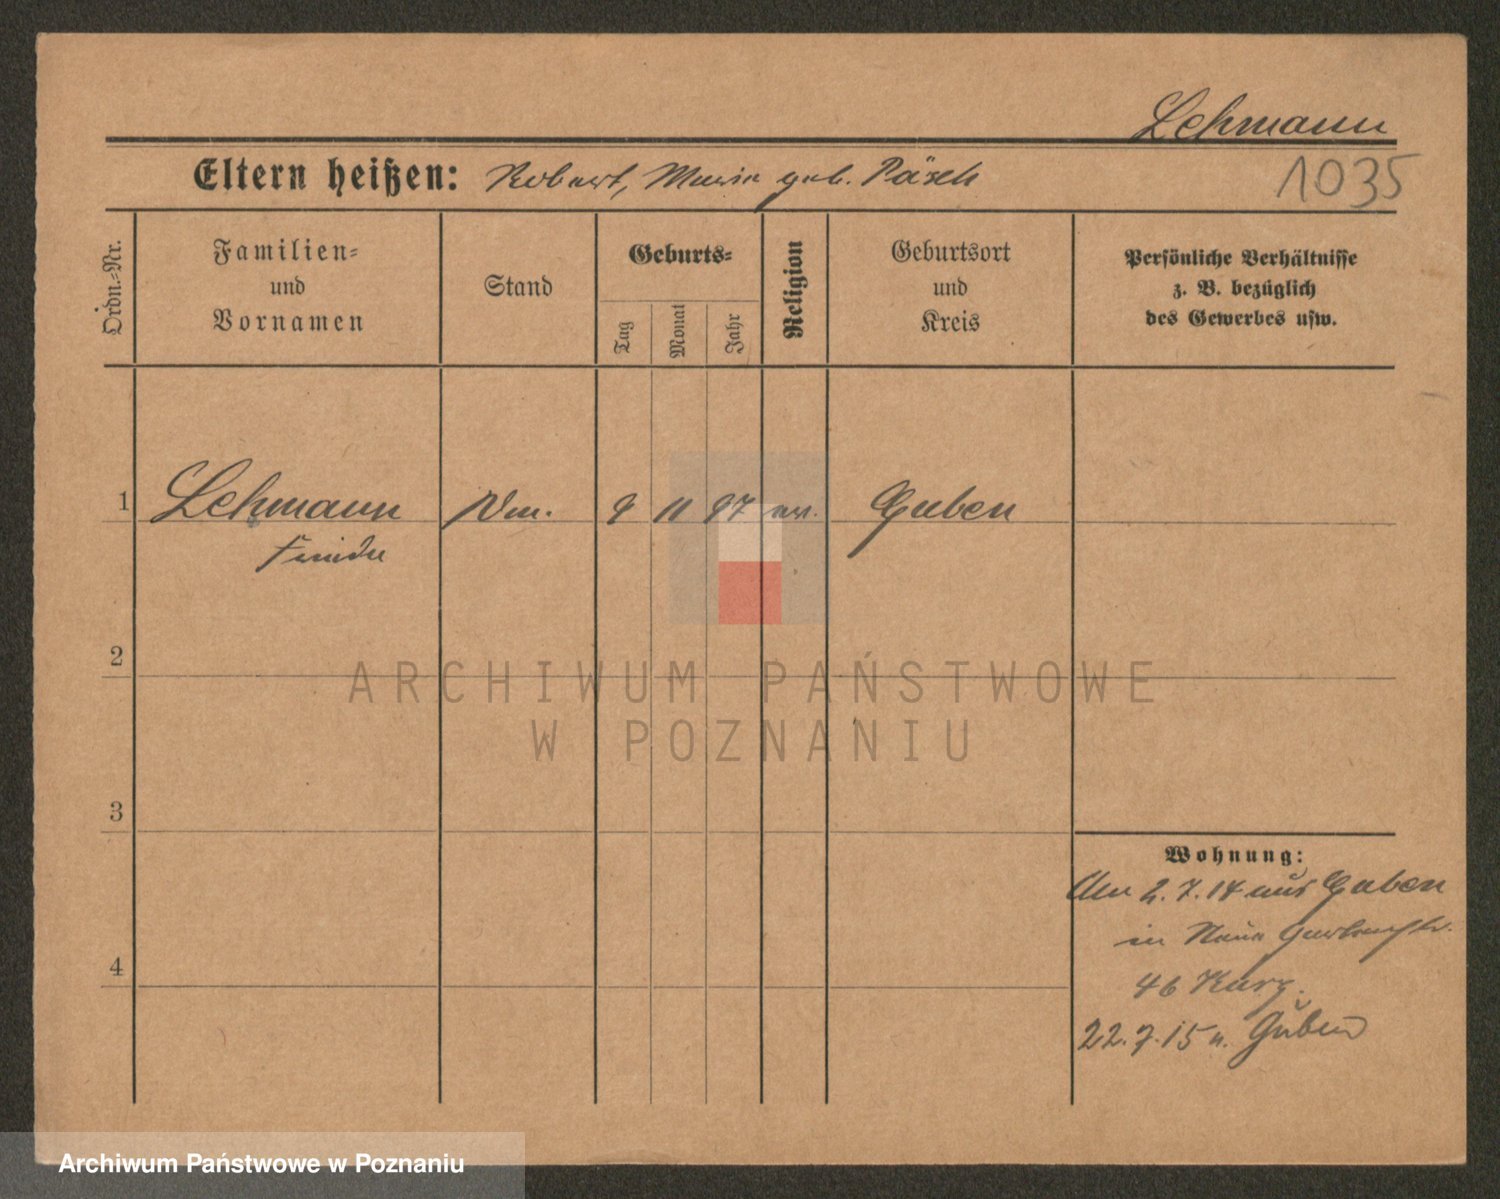 Lehmann
1035
Eltern heißen: Robert, Marie geb. Päsch
Ordn.-Nr.
Familien-
und
Vornamen
Stand
Geburts-
Tag
Monat
Jahr
Religion
Geburtsort
und
Kreis
Persönliche Verhältnisse
z. B. bezüglich
des Gewerbes usw.
1 Lehmann 9 11 97 ev. Guben
2
3
4
Wohnung:
2.7.14 aus Guben
in Neue
46 Kurz.
22.7.15 n. Guben
ARCHIWUM PAŃSTWOWE
W POZNANIU
Archiwum Państwowe w Poznaniu